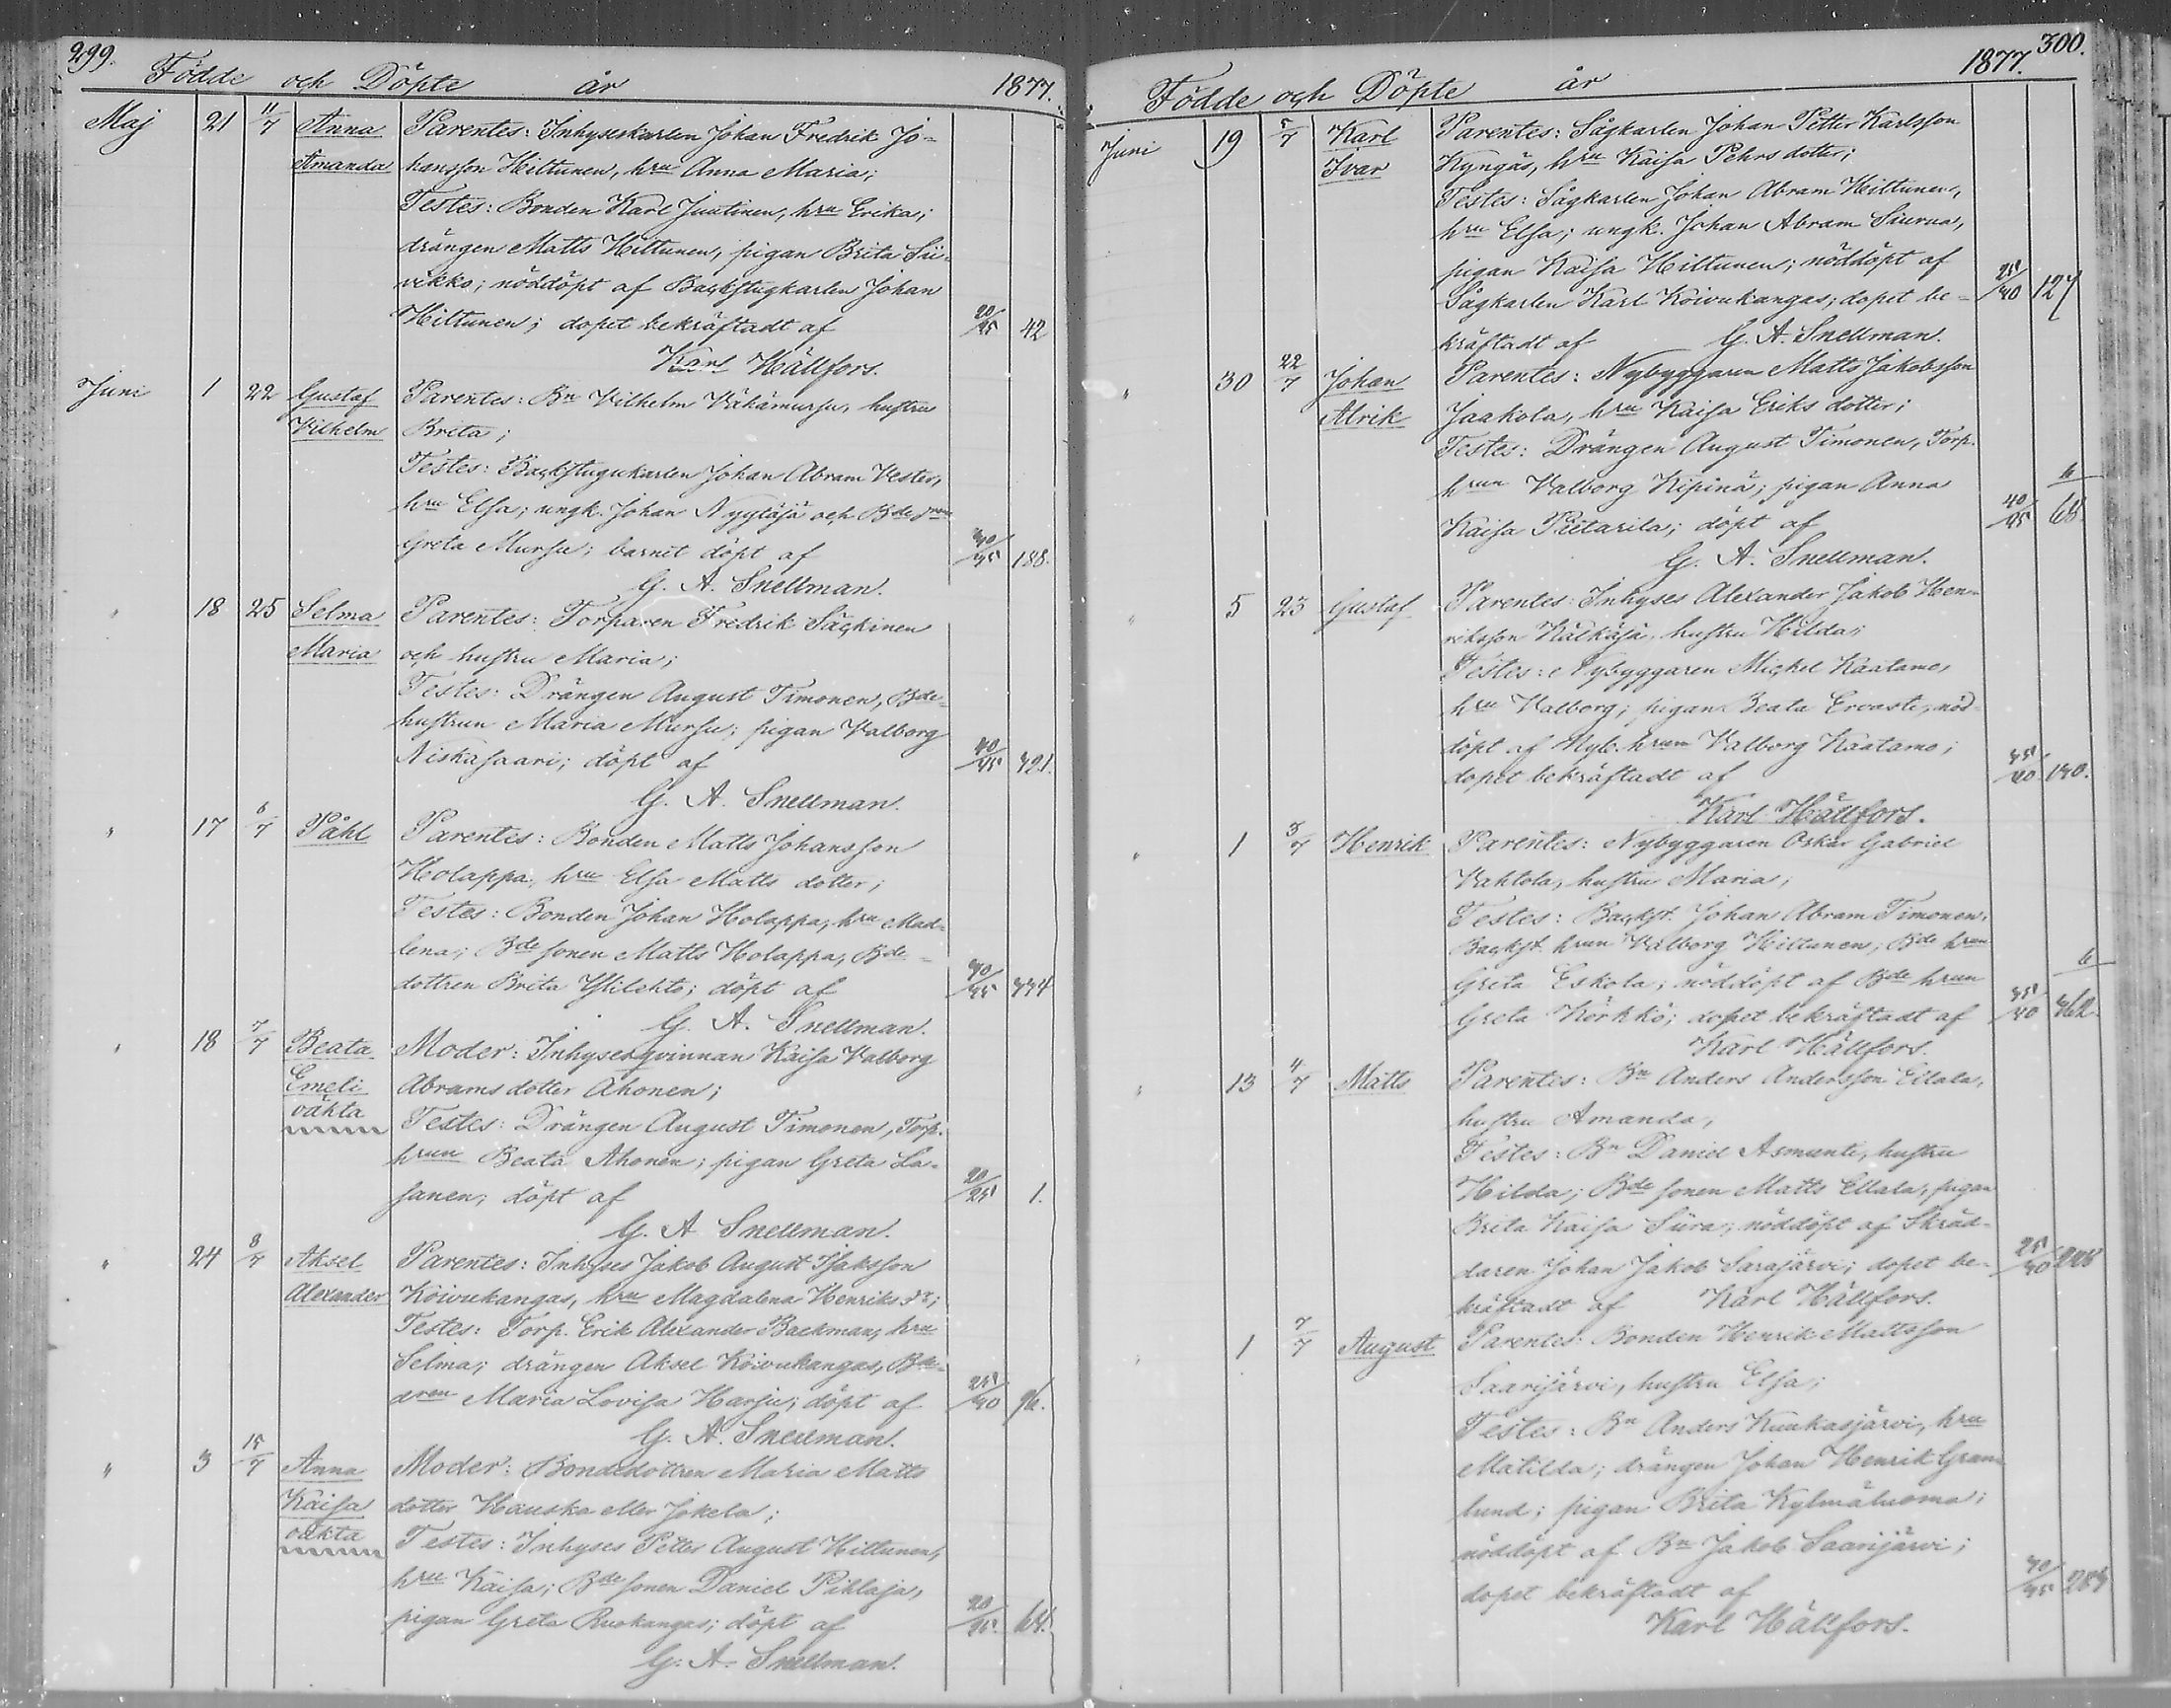 299.
Födde och Döpte år 1877.
Maj 21 11/7 Anna Parentes: Inhyseskarlen Johan Fredrik Jo-
Amanda hansson Hiltunen, hru Anna Maria;
Testes: Bonden Karl Juutinen, hru Erika;
drängen Matts Hiltunen, pigan Brita Sii-
vikko; nöddöpt af Backstugkarlen Johan
Hiltunen; dopet bekräftadt af 20/25 42
Karl Hällfors.
Juni 1 22 Gustaf Parentes: Bn Vilhelm Vähämursu, hustru
Vilhelm Brita;
Testes: Backstugukarlen Johan Abram Vester,
hru Elsa; ungk. Johan Nyyläjä och Bde
Greta Mursu; barnet döpt af 188.
G. A. Snellman.
" 18 25 Selma Parentes: Torparen Fredrik Säckinen
Maria och hustru Maria;
Testes: Drängen August Timonen, Bde-
hustrun Maria Mursu; pigan Valborg
Niskasaari; döpt af 40/45 421.
G. A. Snellman.
" 17 6/7 Påhl Parentes: Bonden Matts Johansson
Holappa, hru Elsa Matts dotter;
Testes: Bonden Johan Holappa, hru Mad-
lena; Bde sonen Matts Holappa, Bde-
dottren Brita Ylilehto; döpt af
G. A. Snellman.
" 18 7/7 Beata Moder: Inhysesqvinnan Kaisa Valborg
Emeli Abrams dotter Ahonen;
oäkta Testes: Drängen August Timonen, Torp.
hrun Beata Ahonen; pigan Greta La-
sanen; döpt af 20/25 1.
G. A Snellman.
" 24 8/7 Aksel Parentes: Inhyses Jakob August Isaksson
Alexander Koivukangas, hru Magdalena Henriks dr;
Testes: Torp. Erik Alexander Backman, hru
Selma; drängen Aksel Koivukangas, Bde-
Maria Lovisa Harju; döpt af
G. A. Snellman.
" 3 15/7 Anna Moder: Bondedottren Maria Matts
Kaisa dotter Hauska eller Jokela;
oäkta Testes: Inhyses Petter August Hiltunen,
hru Kaisa; Bde sonen Daniel Pihlaja,
pigan Greta Ruokangas; döpt af 20/25.
G. A. Snellman.
300.
Födde och Döpte år 1877.
Juni 19 5/7 Karl Parentes: Sågkarlen Johan Petter Karlsson
Ivar Kyngäs, hru Kaisa Pehrs dotter;
Testes: Sågkarlen Johan Abram Hiltunen,
hru Elsa; ungk. Johan Abram Siurua,
pigan Kaisa Hiltunen; nöddöpt af
Sågkarlen Karl Koivukangas; dopet be- 127
kräftadt af G. A. Snellman.
" 30 22/7 Johan Parentes: Nybyggaren Matts Jakobsson
Alrik Jaakola, hru Kaisa Eriks dotter;
Testes: Drängen August Timonen, Torp.
hrun Valborg Kipinä; pigan Anna
Kaisa Pietarila; döpt af 40/45
G. A. Snellman.
" 5 23 Gustaf Parentes: Inhyses Alexander Jakob Hen-
riksson Kälkäjä, hustru Hilda;
Testes: Nybyggaren Michel Kaatamo,
hru Valborg; pigan Beata Ervasti; nöd-
döpt af Nyb. hrun Valborg Kaatamo;
dopet bekräftadt af
Karl Hällfors.
" 1 3/7 Henrik Parentes: Nybyggaren Oskar Gabriel
Vahtola, hustru Maria;
Testes: Backst. Johan Abram Timonen,
Backst. hrun Valborg Hiltunen; Bde hrun
Greta Eskola; nöddöpt af Bde hrun
Greta Körkkö; dopet bekräftadt af
Karl Hällfors.
" 13 4/7 Matts Parentes: Bn Anders Andersson Ellala,
hustru Amanda;
Testes: Bn Daniel Asmunti, hustru
Hilda; Bde sonen Matts Ellala, pigan
Brita Kaisa Siira; nöddöpt af Skräd-
daren Johan Jakob Sarajärvi; dopet be-
kräftadt af Karl Hällfors.
" 1 7/7 August Parentes: Bonden Henrik Mattsson
Saarijärvi, hustru Elsa;
Testes: Bn Anders Kuukasjärvi, hru
Matilda; drängen Johan Henrik Gran-
lund; pigan Brita Kylmäluoma;
nöddöpt af Bn Jakob Saarijärvi;
dopet bekräftadt af
Karl Hällfors.